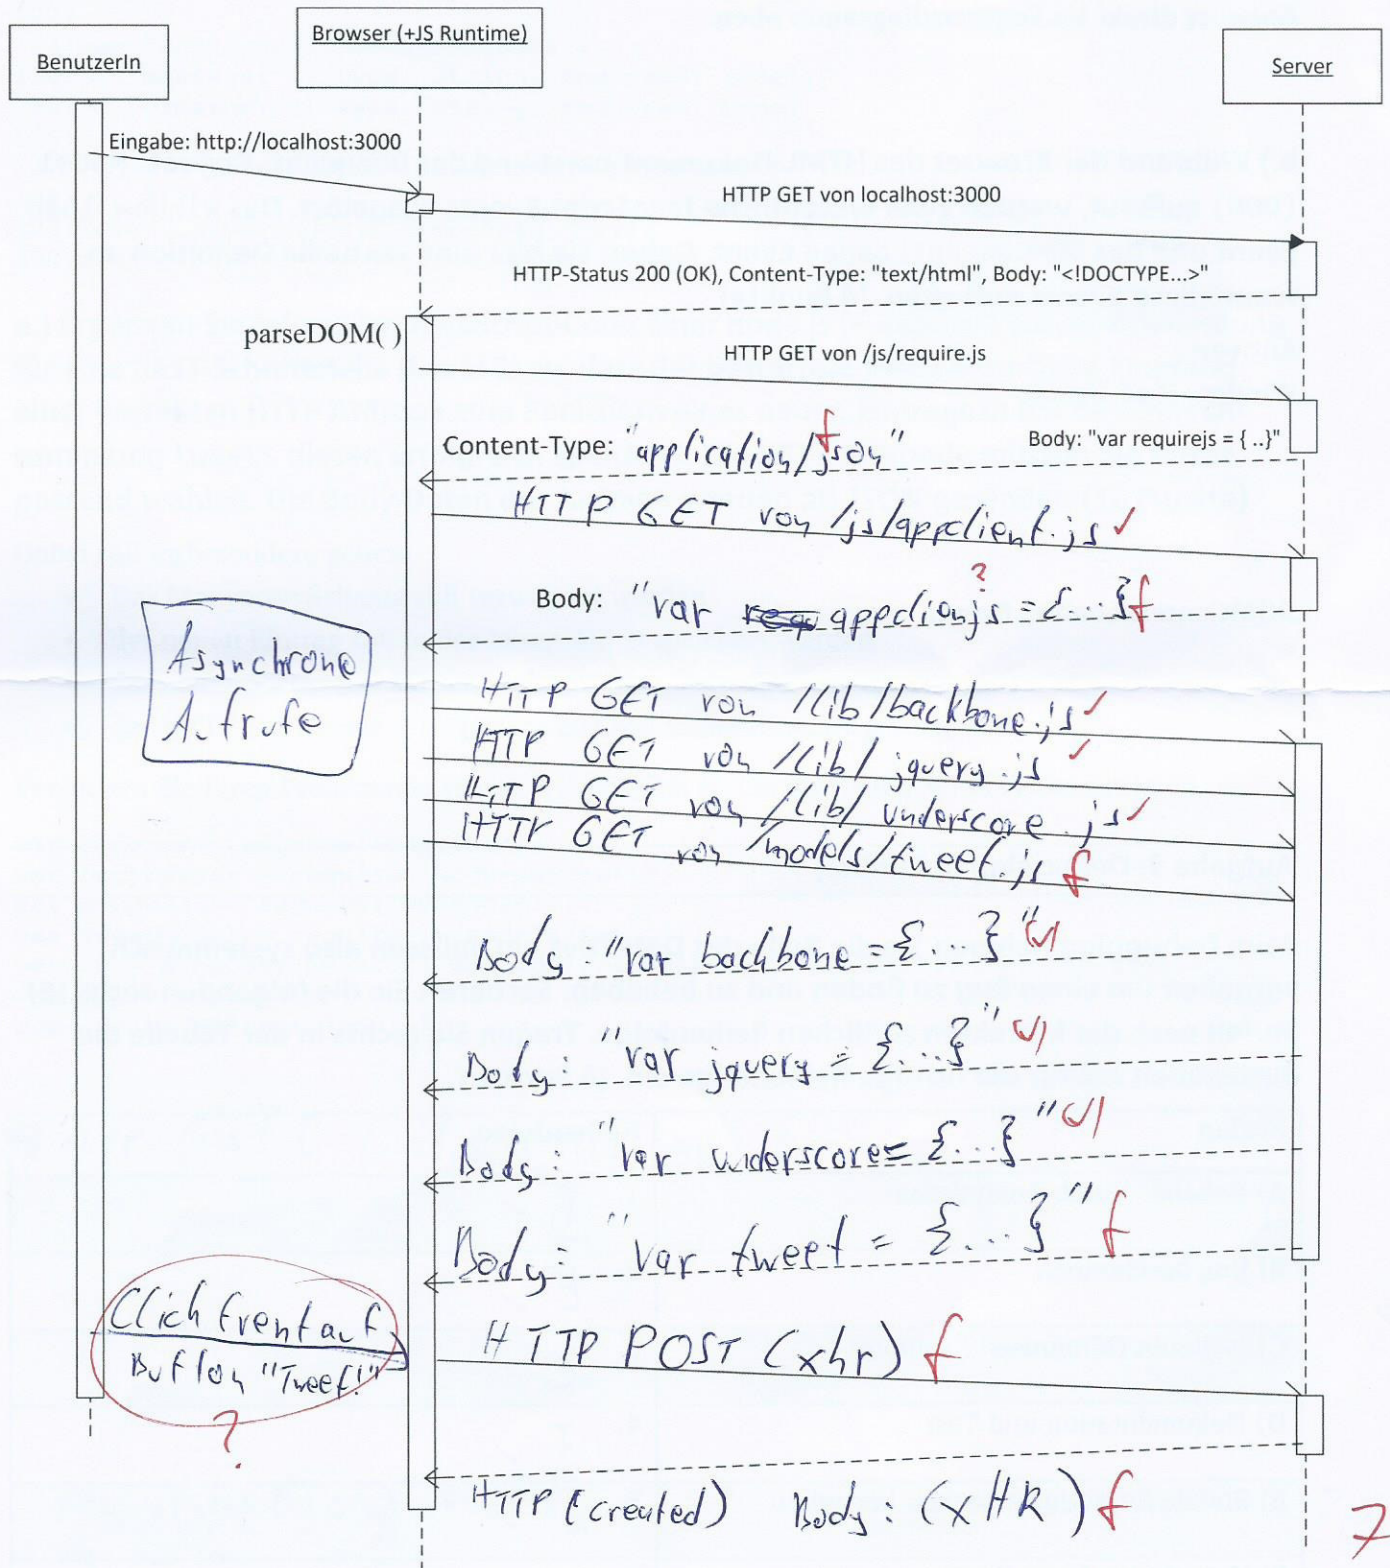 BenutzerIn
Browser (+JS Runtime)
Server
Eingabe: http://localhost:3000
HTTP GET von localhost:3000
HTTP-Status 200 (OK), Content-Type: "text/html", Body: "<!DOCTYPE...>"
parseDOM( )
HTTP GET von /js/require.js
Content-Type: "application/json" f
Body: "var requirejs = { ..}"
HTTP GET von /js/appclient.js ✓
?
Body: "var appclionjs = {...} f
Asynchrone
Aufrufe
HTTP GET von /lib/backbone.js ✓
HTTP GET von /lib/jquery.js ✓
HTTP GET von /lib/underscore.js ✓
HTTP GET von /models/tweet.js f
Body: "var backbone = {...}" (✓)
Body: "var jquery = {...}" (✓)
Body: "var underscore = {...}" (✓)
Body: "var tweet = {...}" f
Click Event auf
Button "Tweet!"
?
HTTP POST (xhr) f
HTTP (created) Body: (xHR) f
7